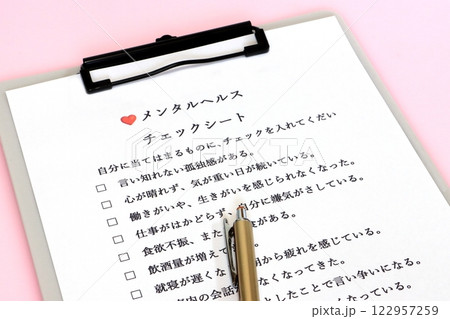 メンタルヘルス
チェックシート
自分に当てはまるものに、チェックを入れてください
言い知れない孤独感がある。
心が晴れず、気が重い日が続いている。
働きがいや、生きがいを感じられなくなった。
仕事がはかどらず、自分に嫌気がさしている。
食欲不振、また がある。
飲酒量が増えて
就寝が遅くな 朝から疲れを感じている。
内の会話 なくなってきた。
としたことで言い争いになる。
なっている。
PIXTA
122957259